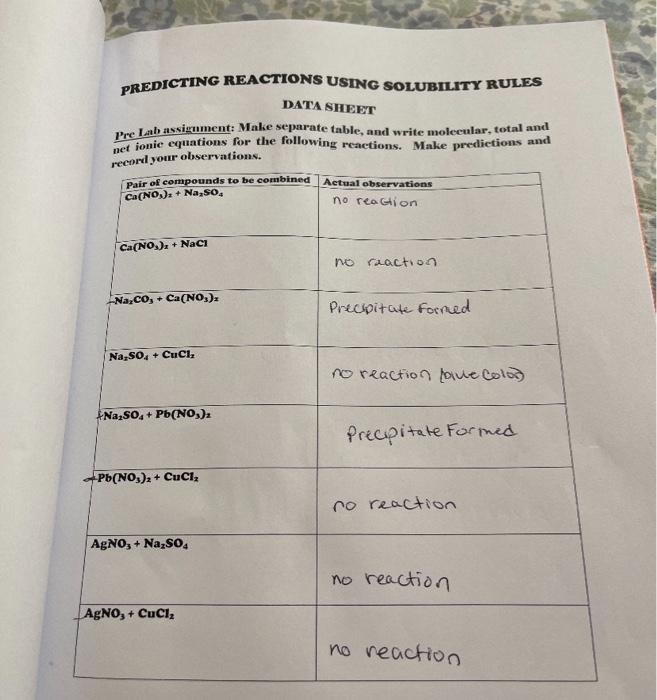 PREDICTING REACTIONS USING SOLUBILITY RULES
DATA SHEET
Pre Lab assignment: Make separate table, and write molecular, total and
net ionic equations for the following reactions. Make predictions and
record your observations.
Pair of compounds to be combined Actual observations
Ca(NO₃)₂ + Na₂SO₄
no reaction
Ca(NO₃)₂ + NaCl
no reaction
Na₂CO₃ + Ca(NO₃)₂
Precipitate Formed
Na₂SO₄ + CuCl₂
no reaction (blue color)
Na₂SO₄ + Pb(NO₃)₂
Precipitate Formed
Pb(NO₃)₂ + CuCl₂
no reaction
AgNO₃ + Na₂SO₄
no reaction
AgNO₃ + CuCl₂
no reaction